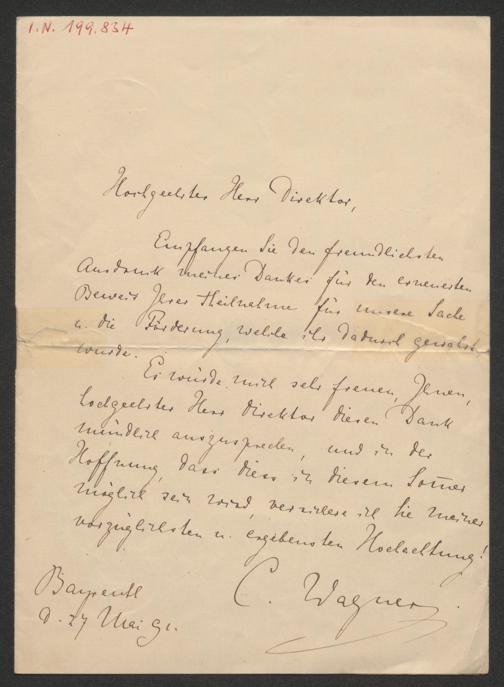 I.N. 199.834
Hochgeehrter Herr Direktor,
Empfangen Sie den freundlichsten
Ausdruck meines Dankes für den erneuerten
Beweis Ihrer Theilnahme für unsere Sache
u. die Förderung, welche ihr dadurch gewährt
wurde.
Es würde mich sehr freuen, Ihnen,
hochgeehrter Herr Direktor diesen Dank
mündlich auszusprechen, und in der
Hoffnung, dass diess in diesem Somer
möglich sein wird, versichere ich Sie meiner
vorzüglichsten u. ergebensten Hochachtung!
C. Wagner.
Bayreuth
d. 27 Mai 91.